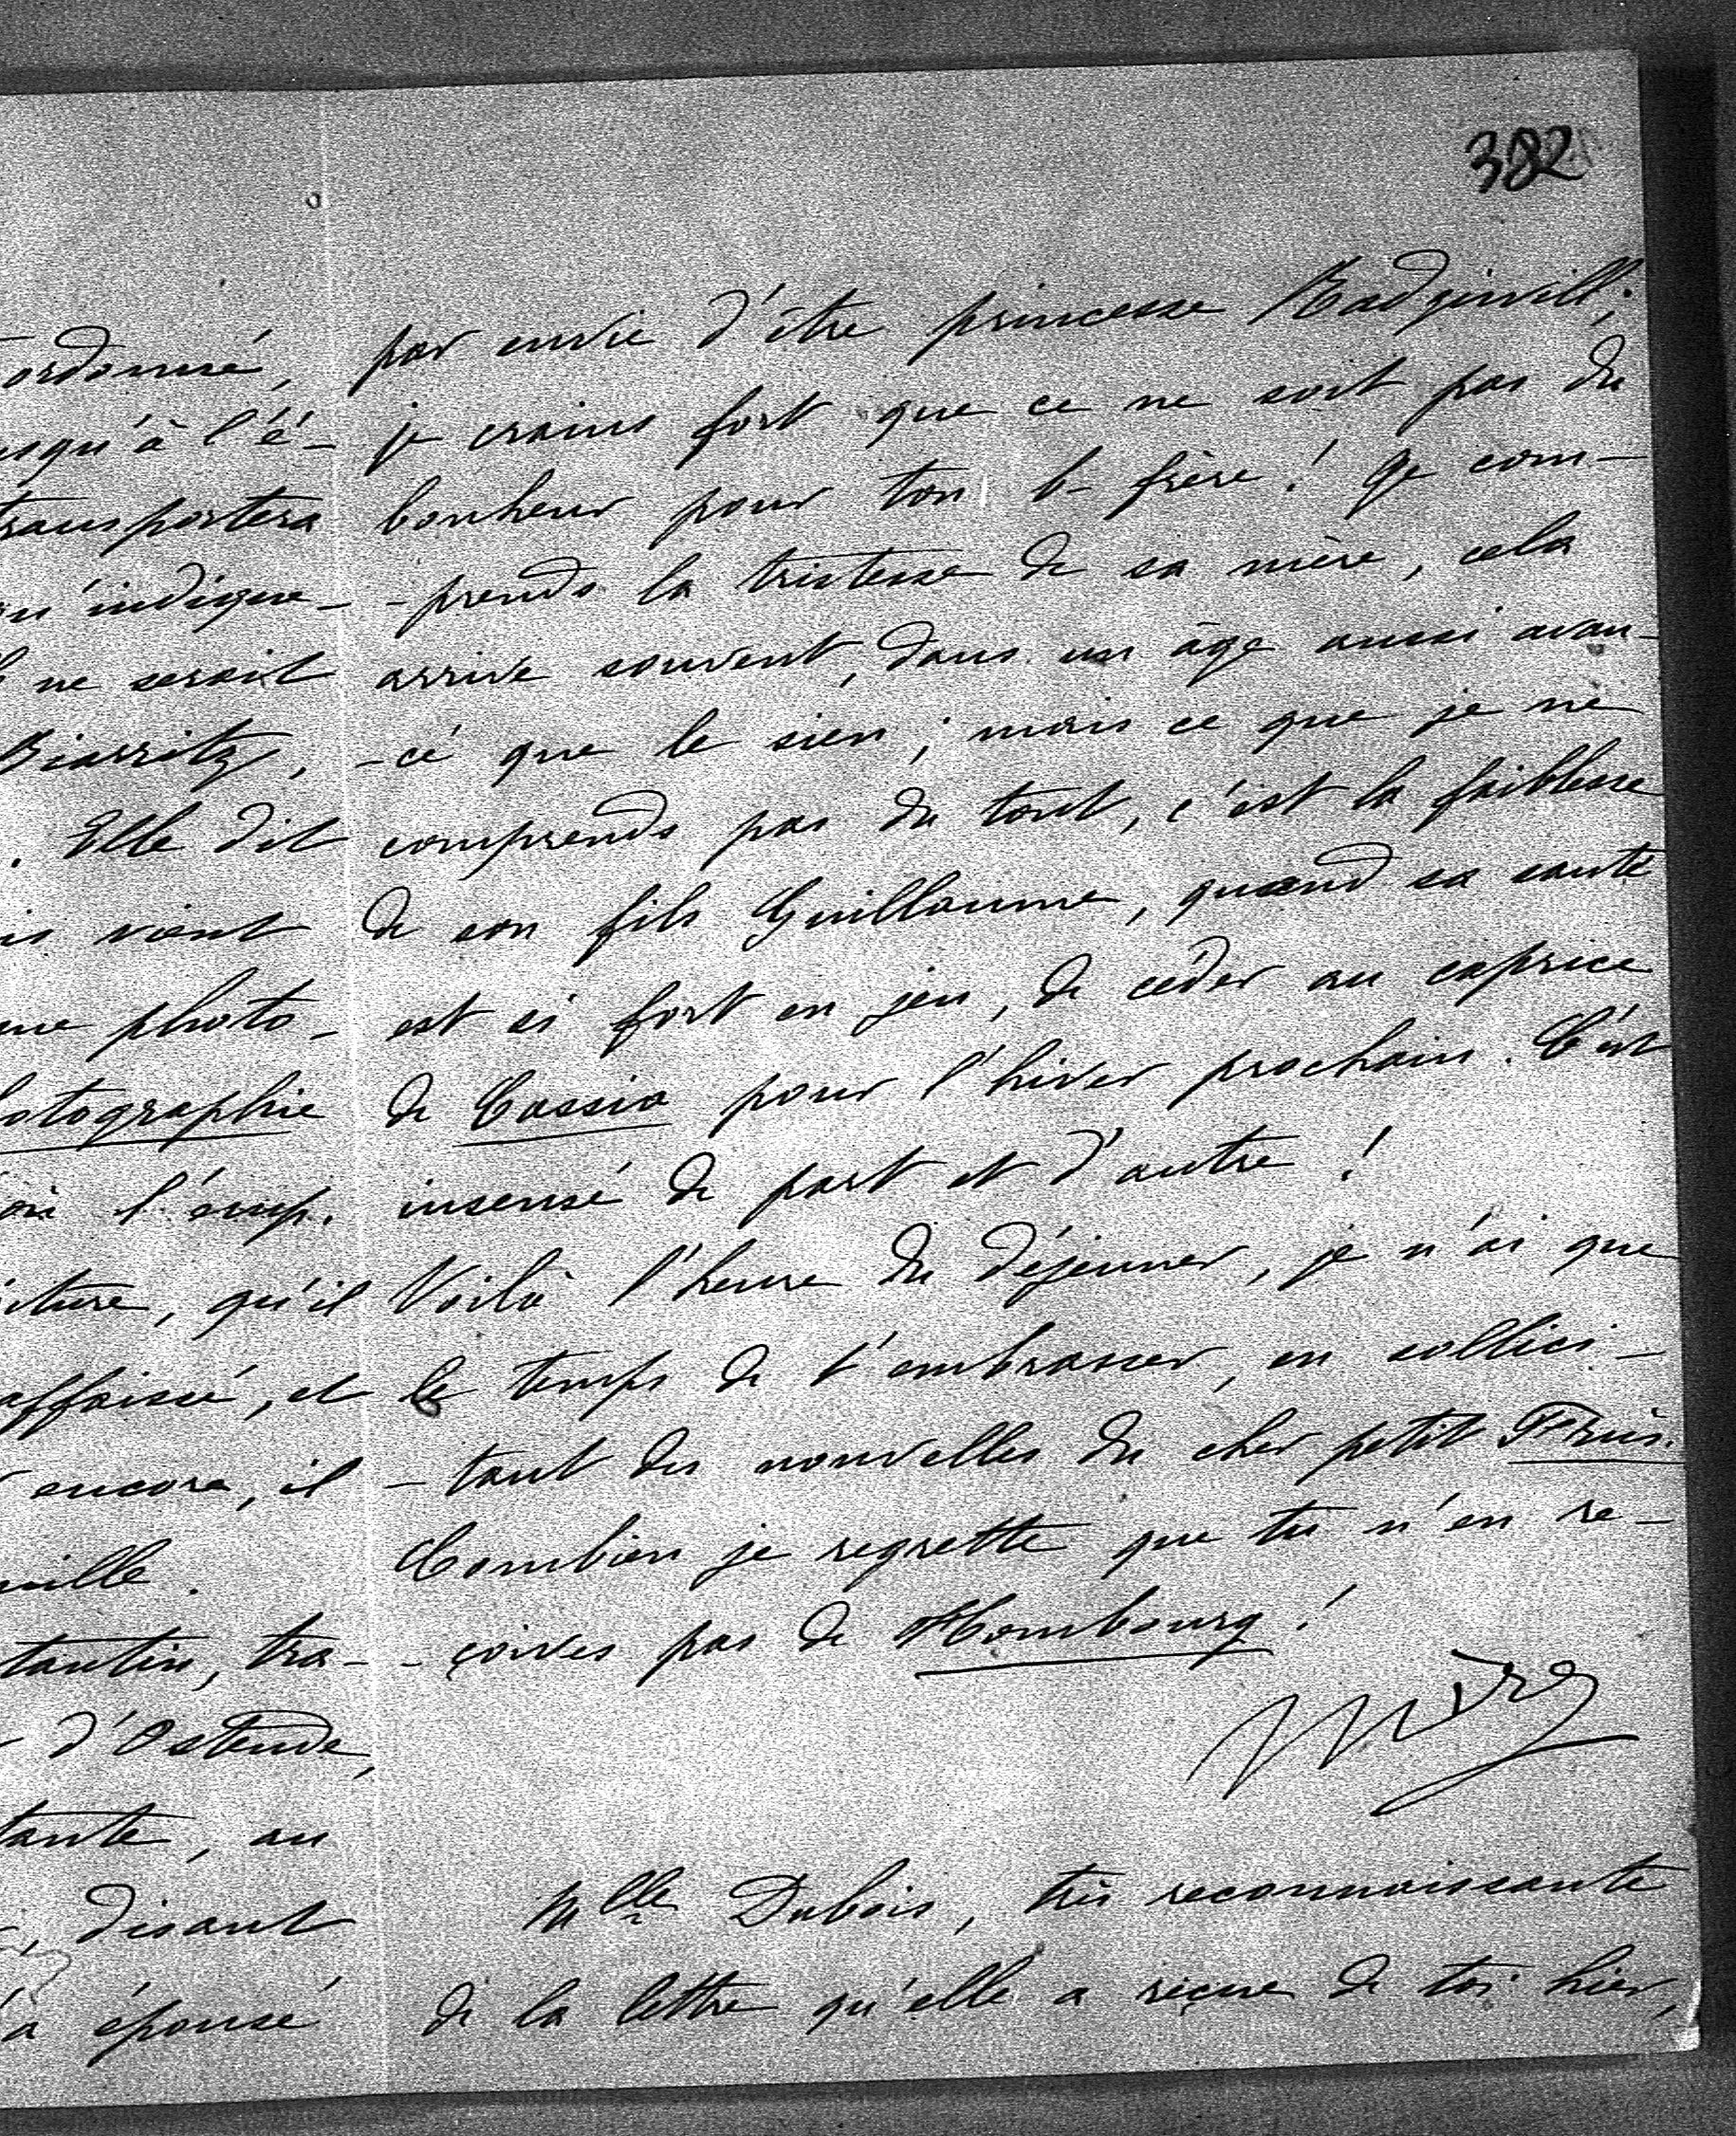 382
ordonné,
usqu'à l'é-
transportera
qu'indique-
il ne serait
Biarritz,
. Elle dit
is vient
une photo-
hotographie
où l'emp.
iture, qu'il
affaissé, et
encore, il
mille.
tantin, tra-
d'Ostende,
tante, au
, disant
a épousé
par envie d'être princesse Radziwill;
je crains fort que ce ne soit pas du
bonheur pour ton b- frère! Je com-
-prends la tristesse de sa mère, cela
arrive souvent, dans un âge aussi avan-
-cé que le sien; mais ce que je ne
comprends pas du tout, c'est la faiblesse
de son fils Guillaume, quand sa santé
est si fort en jeu, de céder au caprice
de Cassia pour l'hiver prochain. C'est
insensé de part et d'autre!
Voilà l'heure du déjeuner, je n'ai que
le temps de t'embrasser, en sollici-
-tant des nouvelles du cher petit
Combien je regrette que tu n'en re-
-çoives pas de Hombourg!
Mlle Dubois, très reconnaissante
de la lettre qu'elle a reçue de toi hier,